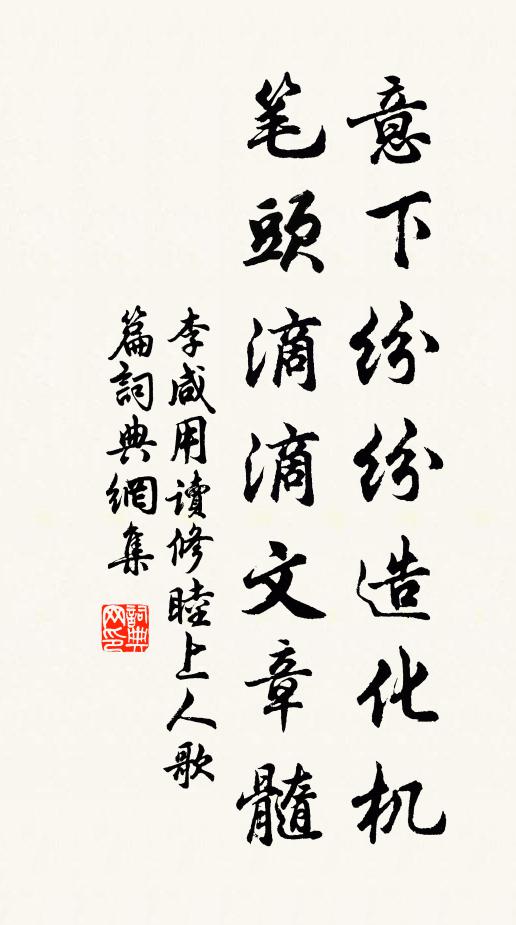 意下纷纷造化机
笔頭滴滴文章髓
李咸用讀修睦上人歌
篇詞典網集
詞典
网印